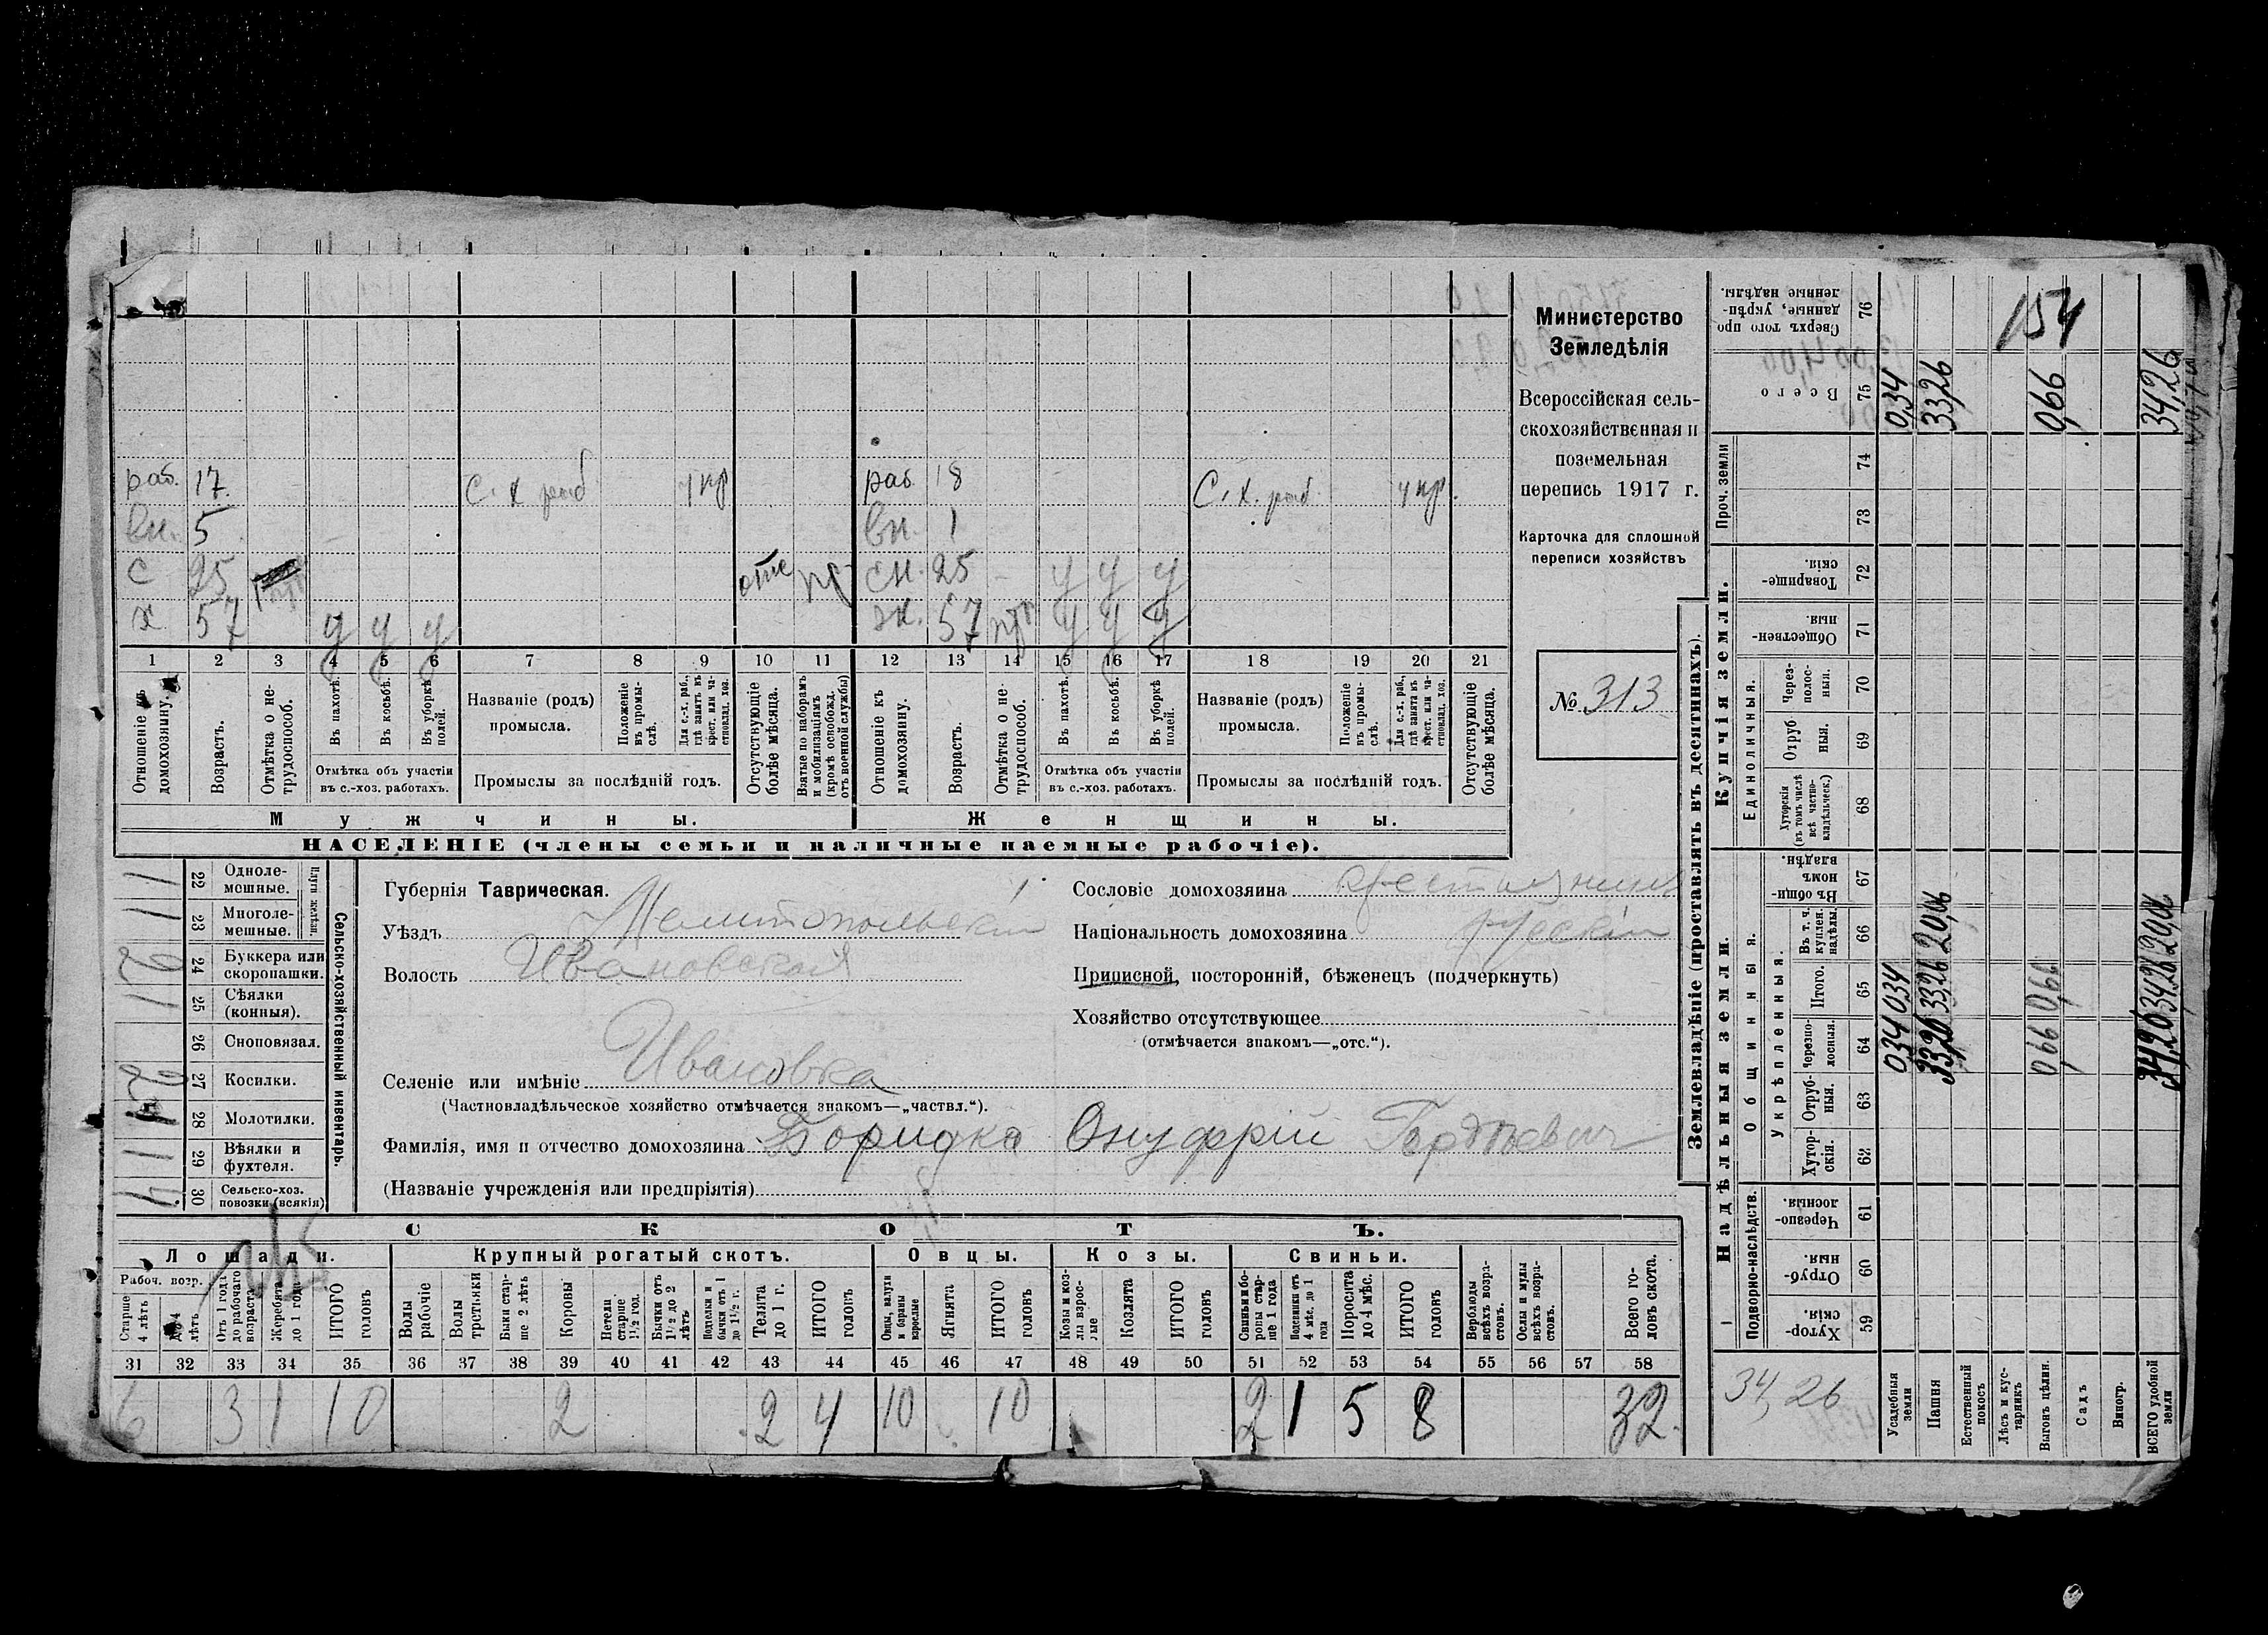 раб. 17. С. х раб у кр раб 18 С. х. раб. у кр.
вн. 5 вн. 1
с 25 отс сн. 25 у у у
х 57 у у у жн. 57 у у у
1 2 3 4 5 6 7 8 9 10 11 12 13 14 15 16 17 18 19 20 21
Отношеніе къ домохозяину.
Возрастъ.
Отмѣтка о не-трудоспособ.
Въ пахотѣ.
Въ косьбѣ.
Въ уборкѣ полей.
Отмѣтка объ участіи
въ с.-хоз. работахъ.
Названіе (родъ)
промысла.
Положеніе въ промы-слѣ.
Для с.-х. раб., гдѣ занятъ въ крест. или ча-стновлад. хоз.
Промыслы за послѣдній годъ.
Отсутствующіе болѣе мѣсяца.
Взятые по наборамъ и мобилизаціямъ (кромѣ освобожд. отъ военной службы)
Отношеніе къ домохозяину.
Возрастъ.
Отмѣтка о не-трудоспособ.
Въ пахотѣ.
Въ косьбѣ.
Въ уборкѣ полей.
Отмѣтка объ участіи
въ с.-хоз. работахъ.
Названіе (родъ)
промысла.
Положеніе въ промы-слѣ.
Для с.-х. раб., гдѣ занятъ въ крест. или ча-стновлад. хоз.
Промыслы за послѣдній годъ.
Отсутствующіе болѣе мѣсяца.
Мужчины. Женщины.
НАСЕЛЕНІЕ (члены семьи и наличные наемные рабочіе).
Министерство
Земледѣлія
Всероссійская сель-
скохозяйственная и
поземельная
перепись 1917 г.
Карточка для сплошной
переписи хозяйствъ
№ 313
1 22 Одноле-мешные.
1 23 Многоле-мешные.
Плуги желѣзн.
2 24 Буккера или скоропашки.
1 25 Сѣялки (конныя).
26 Сноповязал.
2 27 Косилки.
28 Молотилки.
1 29 Вѣялки и фухтеля.
4 30 Сельско-хоз. повозки (всякія)
Сельско-хозяйственный инвентарь.
Губернія Таврическая.
Уѣздъ Мелитопольскій
Волость Ивановская
Селеніе или имѣніе Ивановка
(Частновладѣльческое хозяйство отмѣчается знакомъ—„частвл.“).
Фамилія, имя и отчество домохозяина Онуфрій Гордѣевич
(Названіе учрежденія или предпріятія)
Сословіе домохозяина крестьянинъ
Національность домохозяина русскій
Приписной, посторонній, бѣженецъ (подчеркнуть)
Хозяйство отсутствующее
(отмѣчается знакомъ—„отс.“).
СКОТЪ.
Лошади. Крупный рогатый скотъ. Овцы. Козы. Свиньи.
Рабоч. возр.
Старше 4 лѣтъ
До 4 лѣтъ
Отъ 1 года до рабочаго возраста
Жеребята до 1 года
ИТОГО головъ
Волы рабочіе
Волы третьяки
Быки стар-ше 2 лѣтъ
Коровы
Нетели старше 1½ год.
Бычки отъ 1½ до 2 лѣтъ
Подтелки и бычки отъ 1 до 1½ г.
Телята до 1 г.
ИТОГО головъ
Овцы, валухи и бараны взрослые
Ягнята
ИТОГО головъ
Козы и коз-лы взрос-лые
Козлята
ИТОГО головъ
Свиньи и бо-ровы стар-ше 1 года
Подсвинки отъ 4 мѣс. до 1 года
Поросята до 4 мѣс.
ИТОГО головъ
Верблюды всѣхъ возра-стовъ.
Ослы и мулы всѣхъ возра-стовъ.
Всего го-ловъ скота.
31 32 33 34 35 36 37 38 39 40 41 42 43 44 45 46 47 48 49 50 51 52 53 54 55 56 57 58
6 3 1 10 2 2 4 10 10 2 1 5 8 32
Землевладѣніе (проставлять въ десятинахъ).
Надѣльныя земли. Купчія земли. Проч. земли
Подворно-наслѣдств. Общинныя. Единоличныя.
Укрѣпленныя.
Хутор-скія. 59
Отруб-ныя. 60
Черезпо-лосныя. 61
Хутор-скія. 62
Отруб-ныя. 63
Черезпо-лосныя. 64
Итого. 65
Въ т. ч. куплен. надѣлы. 66
Въ общи-номъ владѣн. 67
Хуторскія (въ томъ числѣ всѣ частно-владѣльческ.) 68
Отруб ныя. 69
Через-полос-ныя. 70
Обществен-ныя. 71
Товарище-скія. 72
73
74
Всего 75
Сверхъ того про данные, укрѣп-ленные надѣлы. 76
34,26
Усадебныя земли 0,34 0,34 0,34
Пашня 33,26 33,26 20,06 33,26
Естественный покосъ
Лѣсъ и кус-тарникъ
Выгонъ цѣлин. 0,66 0,66 0,66
Садъ
Виногр.
ВСЕГО удобной земли 34,26 34,26 20,06 34,26
154